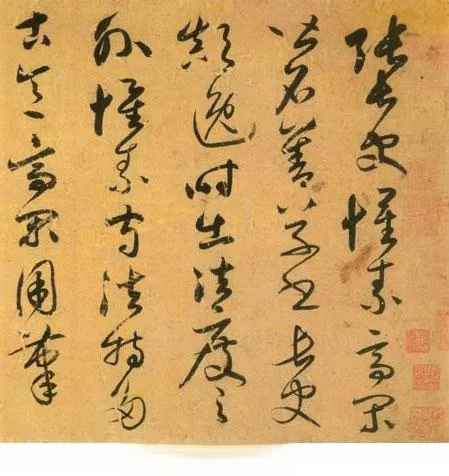 張長史懷素高閒
皆名善草書長史
顛逸時出法度之
外懷素守法特多
古意高閒用筆